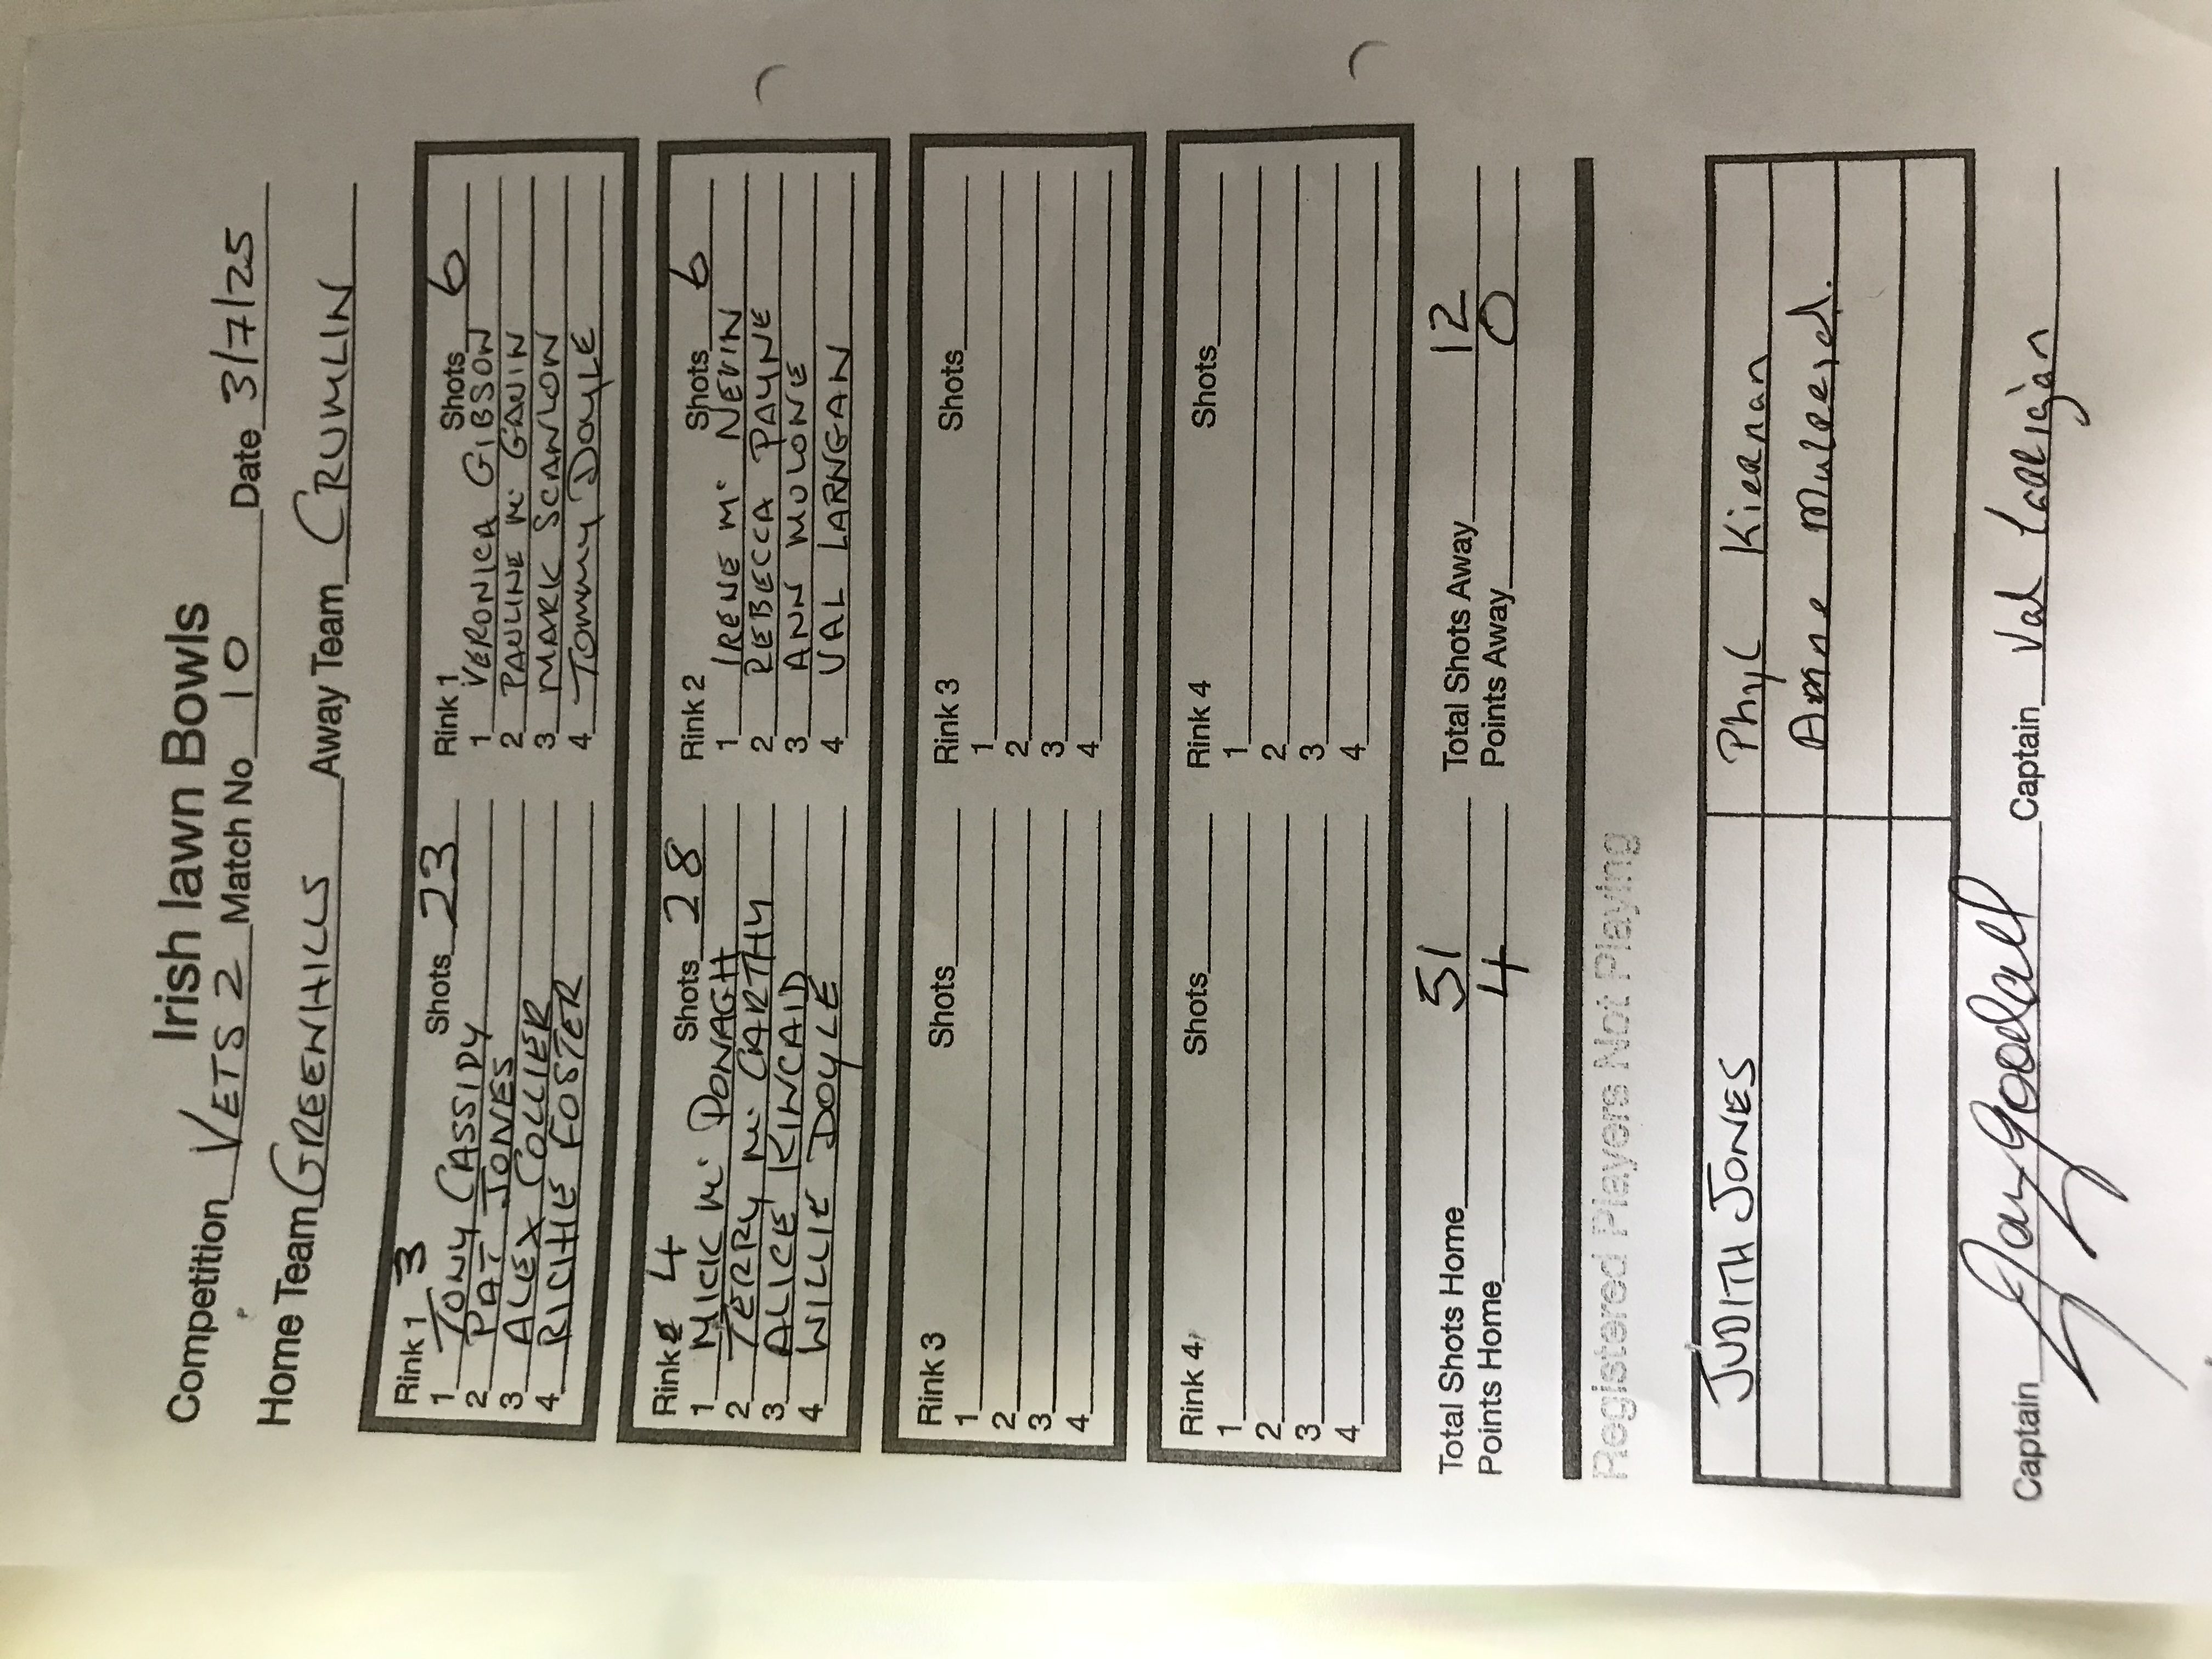 Irish lawn Bowls
Competition VETS 2 Match No 10 Date 3/7/25
Home Team GREENHILLS Away Team CRUMLIN
Rink 1 3 Shots 23 Rink 1 Shots 6
1 TONY CASSIDY 1 VERONICA GIBSON
2 PAT JONES 2 PAULINE Mc GAVIN
3 ALEX COLLIER 3 MARK SCANLON
4 RICHIE FOSTER 4 TOMMY DOYLE
Rink 4 Shots 28 Rink 2 Shots 6
1 MICK Mc DONAGH 1 IRENE Mc NEVIN
2 TERRY Mc CARTHY 2 REBECCA PAYNE
3 ALICE KINCAID 3 ANN MULONE
4 WILLIE DOYLE 4 VAL LARNGAN
Rink 3 Shots Rink 3 Shots
1 1
2 2
3 3
4 4
Rink 4 Shots Rink 4 Shots
1 1
2 2
3 3
4 4
Total Shots Home 51 Total Shots Away 12
Points Home 4 Points Away 0
Registered Players Not Playing
JUDITH JONES Phyl Kiernan
Anne
Captain Captain Val